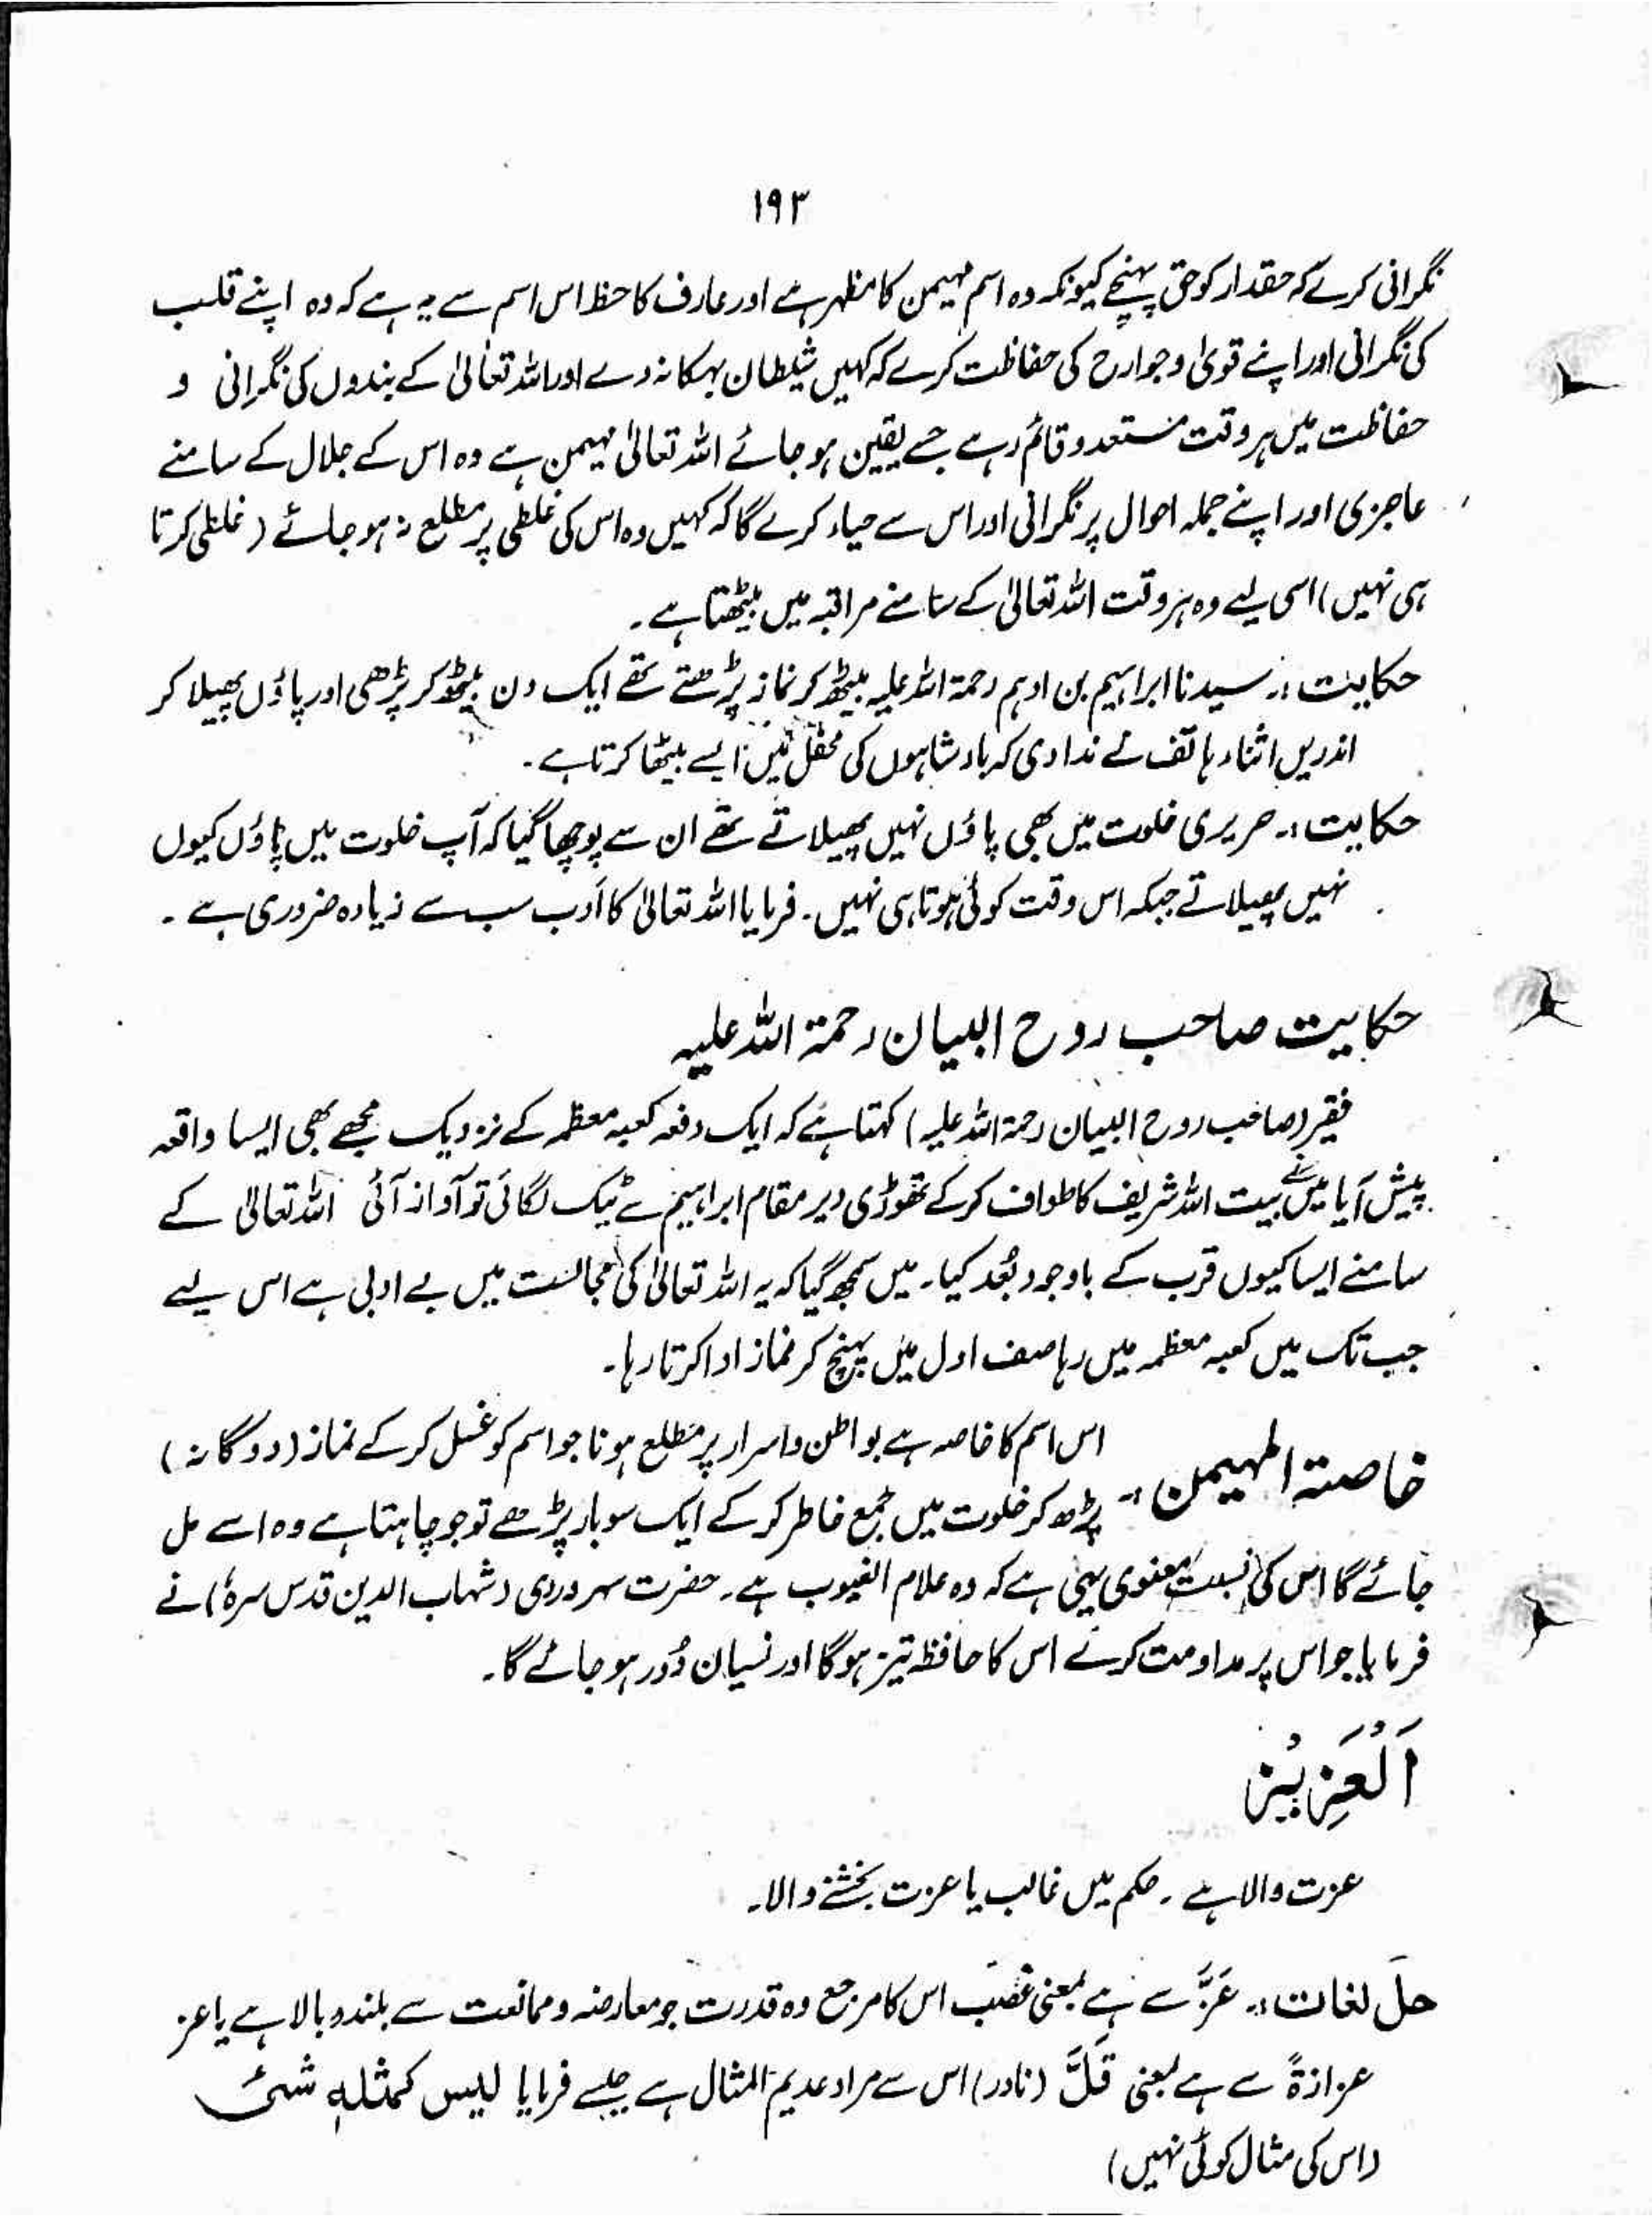 ۱۹۳
نگرانی کرے کہ حقدار کو حق پہنچے کیونکہ وہ اسم مہیمن کا مظہر ہے اور عارف کا حظ اس اسم سے یہ ہے کہ وہ اپنے قلب
کی نگرانی اور اپنے قویٰ و جوارح کی حفاظت کرے کہ کہیں شیطان بہکا نہ دے اور اللہ تعالیٰ کے بندوں کی نگرانی و
حفاظت میں ہر وقت مستعد و قائم رہے جسے یقین ہو جائے اللہ تعالیٰ مہیمن ہے وہ اس کے جلال کے سامنے
عاجزی اور اپنے جملہ احوال پر نگرانی اور اس سے حیاء کرے گا کہ کہیں وہ اس کی غلطی پر مطلع نہ ہو جائے (غلطی کرتا
ہی نہیں) اسی لیے وہ ہر وقت اللہ تعالیٰ کے سامنے مراقبہ میں بیٹھتا ہے۔
حکایت :۔ سیدنا ابراہیم بن ادہم رحمۃ اللہ علیہ بیٹھ کر نماز پڑھتے تھے ایک دن بیٹھ کر پڑھی اور پاؤں پھیلا کر
اندریں اثناء ہاتف نے ندا دی کہ بادشاہوں کی محفل میں ایسے بیٹھا کرتا ہے۔
حکایت :۔ حریری خلوت میں بھی پاؤں نہیں پھیلاتے تھے ان سے پوچھا گیا کہ آپ خلوت میں پاؤں کیوں
نہیں پھیلاتے جبکہ اس وقت کوئی ہوتا ہی نہیں۔ فرمایا اللہ تعالیٰ کا اَدب سب سے زیادہ ضروری ہے۔
حکایت صاحب روح البیان رحمۃ اللہ علیہ
فقیر (صاحب روح البیان رحمۃ اللہ علیہ) کہتا ہے کہ ایک دفعہ کعبہ معظمہ کے نزدیک مجھے بھی ایسا واقعہ
پیش آیا میں نے بیت اللہ شریف کا طواف کر کے تھوڑی دیر مقام ابراہیم سے ٹیک لگائی تو آواز آئی اللہ تعالیٰ کے
سامنے ایسا کیوں قرب کے باوجود بُعد کیا۔ میں سمجھ گیا کہ یہ اللہ تعالیٰ کی مجالست میں بے ادبی ہے اس لیے
جب تک میں کعبہ معظمہ میں رہا صف اول میں پہنچ کر نماز ادا کرتا رہا۔
خاصتہ المہیمن :۔ اس اسم کا خاصہ ہے بواطن و اسرار پر مطلع ہونا جو اسم کو غسل کر کے نماز (دوگانہ)
پڑھ کر خلوت میں جمع خاطر کر کے ایک سو بار پڑھے تو جو چاہتا ہے وہ اسے مل
جائے گا اس کی نسبت معنوی یہی ہے کہ وہ علام الغیوب ہے۔ حضرت سہروردی (شہاب الدین قدس سرہٗ) نے
فرمایا جو اس پر مداومت کرے اس کا حافظہ تیز ہو گا اور نسیان دُور ہو جائے گا۔
اَلْعَزِیْزُ
عزت والا ہے۔ حکم میں غالب یا عزت بخشنے والا۔
حلَ لغات :۔ عَزَّ سے ہے بمعنی غصَب اس کا مرجع وہ قدرت جو معارضہ و ممانعت سے بلند و بالا ہے یا عز
عزازۃً سے ہے بمعنی قَلَّ (نادر) اس سے مراد عدیم المثال ہے جیسے فرمایا لیس کمثلہٖ شئ
(اس کی مثال کوئی نہیں)